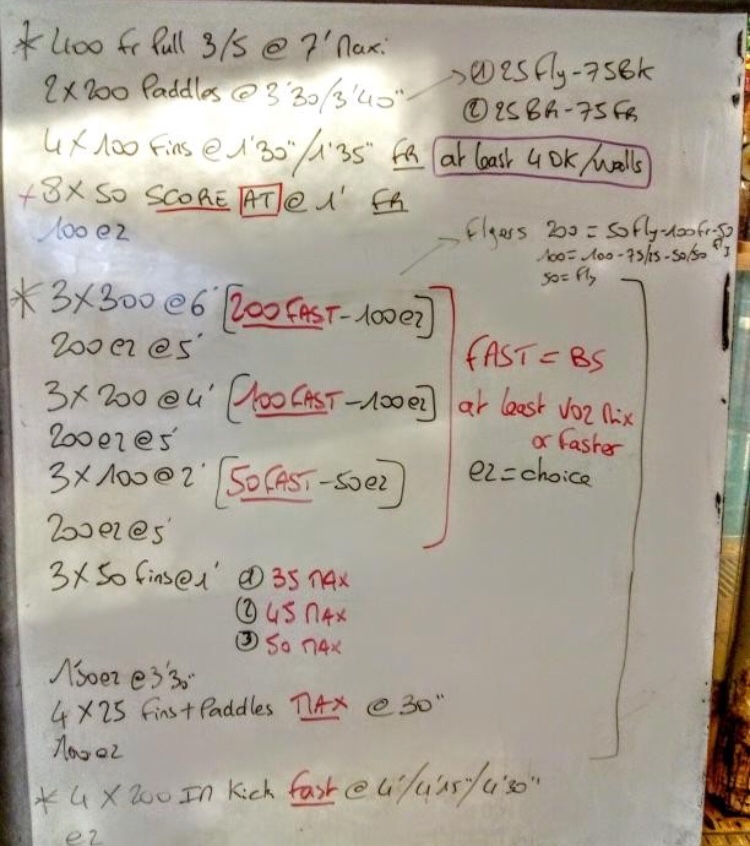 * 400 fr Pull 3/5 @ 7' Maxi
2 x 200 Paddles @ 3'30/3'40" → ① 25 Fly - 75 BK
② 25 BR - 75 FR
4 x 100 Fins @ 1'30"/1'35" FR at least 4 DK/walls
+ 8 x 50 SCORE AT @ 1' FR
100 ez
→ Flyers 200 = 50 Fly - 100 fr - 50 Fly
100 = 100 - 75/25 - 50/50
50 = Fly
* 3 x 300 @ 6' [200 FAST - 100 ez]
200 ez @ 5'
3 x 200 @ 4' [100 FAST - 100 ez]
200 ez @ 5'
3 x 100 @ 2' [50 FAST - 50 ez]
200 ez @ 5'
FAST = BS
at least VO2 Mix
or faster
ez = choice
3 x 50 fins @ 1' ① 35 MAX
② 45 MAX
③ 50 MAX
150 ez @ 3'30"
4 x 25 fins + Paddles MAX @ 30"
100 ez
* 4 x 200 IM Kick fast @ 4'/4'15"/4'30"
ez